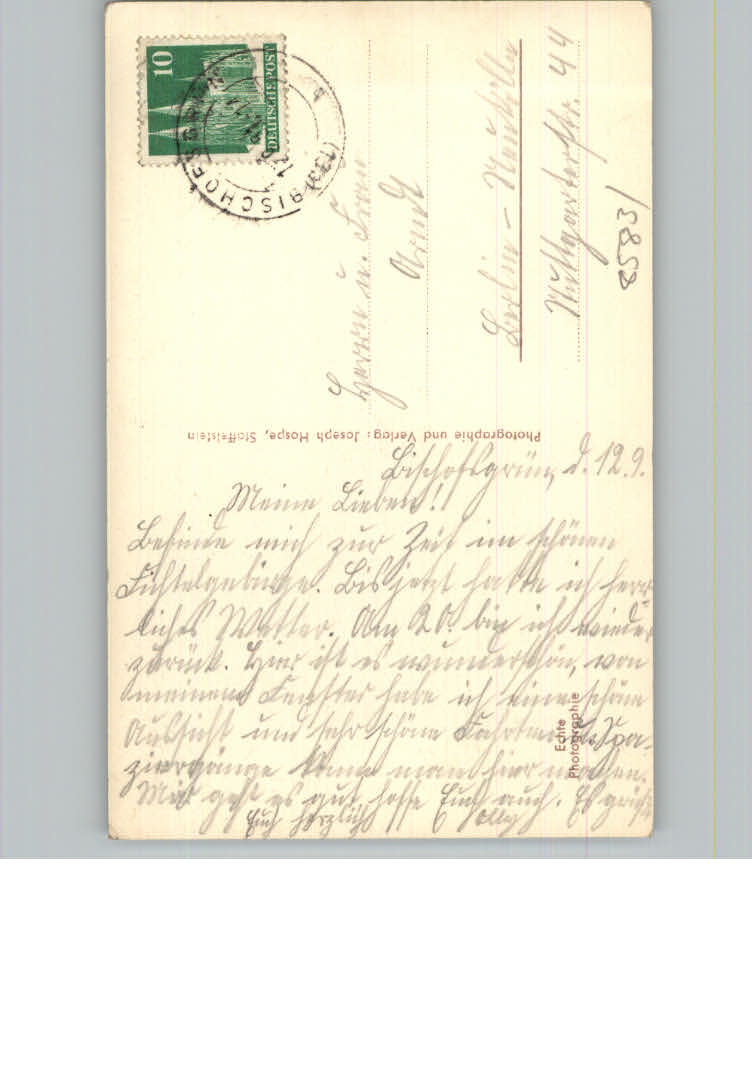 10
DEUTSCHE POST
(13a) BISCHOFSGRÜN
Herrn u. Frau
Arndt
Berlin-Neukölln
Stuttgarterstr. 44
8583/
Photographie und Verlag: Joseph Hospe, Staffelstein
Echte
Photographie
Bischofsgrün, d. 12.9.
Meine Lieben!
Befinde mich zur Zeit im schönen
Fichtelgebirge. Bis jetzt hatte ich herr-
liches Wetter. Am 20. bin ich wieder
zurück. Hier ist es wunderschön, von
meinem Fenster habe ich eine schöne
Aussicht und sehr schöne Fahrten u. Spa-
ziergänge kann man hier machen.
Mir geht es gut, hoffe Euch auch. Es grüßt
Euch herzlich